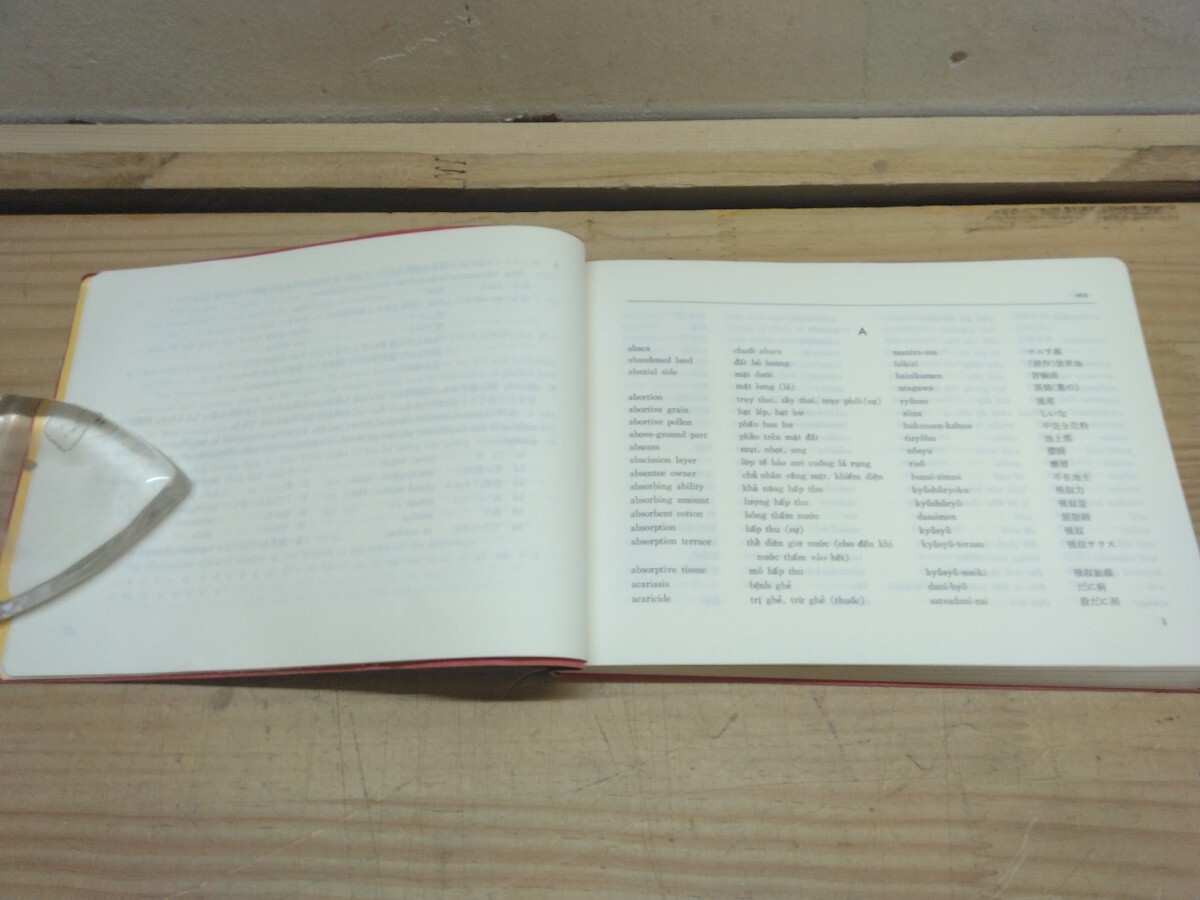 A
abaca chuối abaca manira-asa マニラ麻
abandoned land đất bỏ hoang hôkiti (耕作)放棄地
abaxial side mặt dưới haizikumen 背軸面
mặt lưng (lá) uragawa 裏側(葉の)
abortion truỵ thai, sẩy thai, truỵ phôi (sự) ryûzan 流産
abortive grain hạt lép, hạt hư siina しいな
abortive pollen phấn hoa hư hukanzen-kahun 不完全花粉
above-ground part phần trên mặt đất tizyôbu 地上部
abscess mụt, nhọt, ung nôsyu 膿腫
abscission layer lớp tế bào nơi cuống lá rụng risô 離層
absentee owner chủ nhân vắng mặt, khiếm diện huzai-zinusi 不在地主
absorbing ability khả năng hấp thu 吸収力
absorbing amount lượng hấp thu 吸収量
absorbent cotton bông thấm nước dassimen 脱脂綿
absorption hấp thu (sự) kyûsyû 吸収
absorption terrace thể diện giữ nước (cho đến khi kyûsyû-terasu 吸収テラス
nước thấm vào hết)
absorptive tissue mô hấp thu kyûsyû-sosiki 吸収組織
acariasis bệnh ghẻ dani-byô だに病
acaricide trị ghẻ, trừ ghẻ (thuốc) satudani-zai 殺だに剤
1